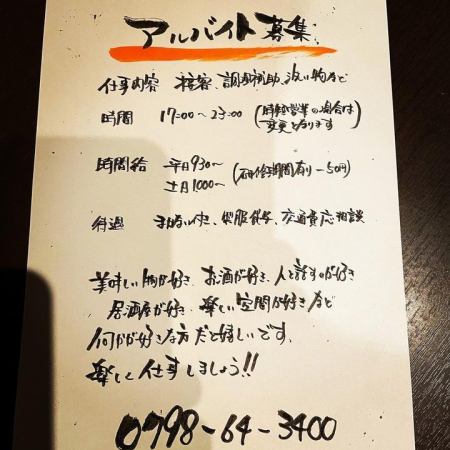 アルバイト募集
仕事内容 接客、調理補助、洗い物など
時間 17:00〜23:00 (時短営業の場合は
変更となります)
時間給 平日930〜 (研修期間有り−50円)
土日1000〜
待遇 まかない付き、制服貸与、交通費応相談
美味しい物が好き、お酒が好き、人と話すのが好き
居酒屋が好き、楽しい空間が好きなど
何かが好きな方だと嬉しいです。
楽しく仕事しましょう!!
0798-64-3400